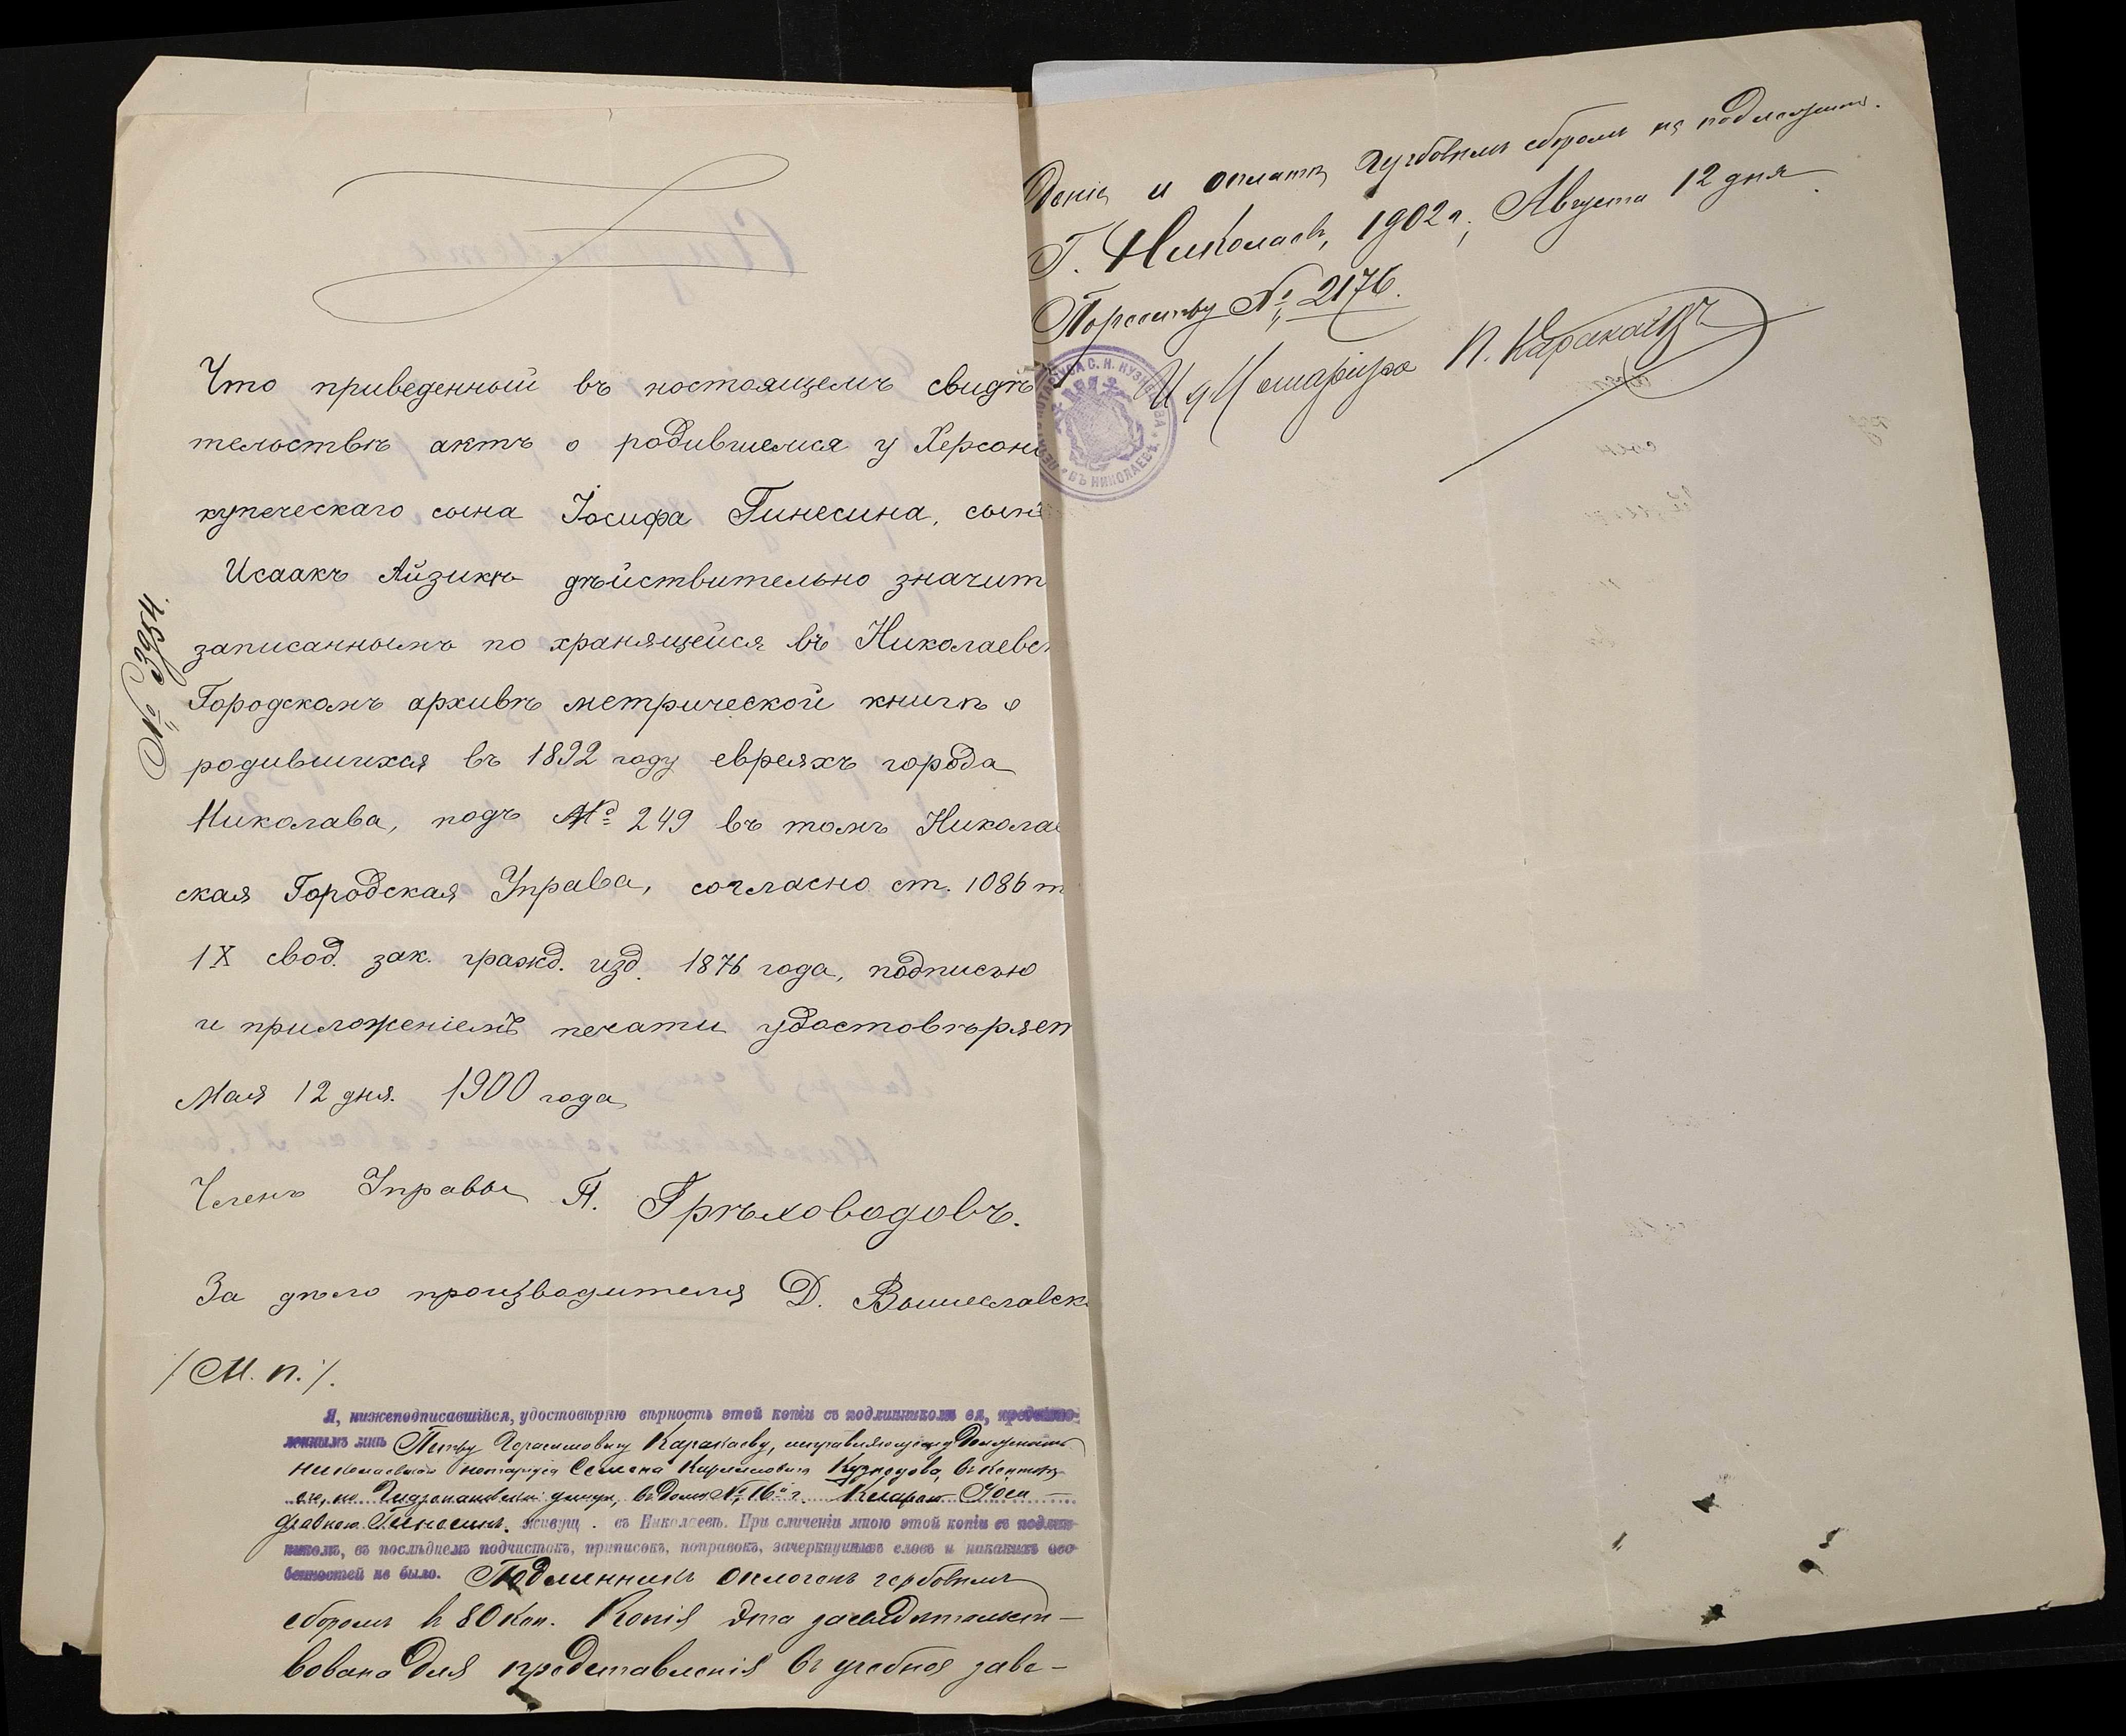 Что приведенный въ ностоящемъ свидѣ
тельствѣ актъ о родившемся у Херсон
купеческаго сына Іосифа Гинесина, сынѣ
Исаакъ Айзикъ дѣйствительно значит
записаннымъ по хранящейся въ Николаевс
Городскомъ архивѣ метрической книгѣ о
родившихся въ 1892 году евреяхъ города
Николава, подъ № 249 въ томъ Николае
ская Городская Управа, согласно ст. 1086 т
IX свод. зак. гражд. изд. 1876 года, подписью
и приложеніемъ печати удостовѣряет
Мая 12 дня. 1900 года
№ 3354.
Членъ Управы П. Грѣховодовъ.
За дѣло производителя Д. Вышеславск
/М. п./.
Я, нижеподписавшійся, удостовѣряю вѣрность этой копіи съ подлинникомъ ея, представ-
леннымъ мнѣ Петру Герасимовичу Каракаеву, исправляющему должность
николаевскаго нотаріуса Семена Кирилловича Кузнецова, въ конторѣ
его, по улицѣ, въ домѣ № 16 г. Іоси-
фовною Гинесинъ. живущ. въ Николаевѣ. При сличеніи мною этой копіи съ подлин-
никомъ, въ послѣднемъ подчистокъ, приписокъ, поправокъ, зачеркнутыхъ словъ и никакихъ осо-
бенностей не было. Подлинникъ оплоченъ гербовымъ
сборомъ в 80 коп. Копія эта засвидѣтельст-
вована для представленія въ учебное заве-
деніе и оплатѣ гербовымъ сборомъ не подлежитъ.
Г. Николаевъ, 1902 г., Августа 12 дня
По реестру № 2176.
И д Нотаріуса П. Каракаевъ
НОТАРІУСА С. К. КУЗНЕЦОВА
ВЪ НИКОЛАЕВѢ